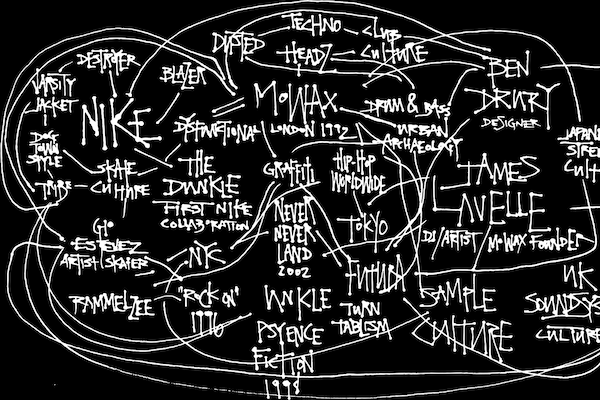 TECHNO
CLUB
CULTURE
DUSTED
HEADZ
DESTROYER
BLAZER
VARSITY
JACKET
NIKE
MOWAX
LONDON 1992
DRUM & BASS
URBAN
ARCHAEOLOGY
BEN
DRURY
DESIGNER
JAPANE
STREE
CULT
DYSFUNCTIONAL
DOG
TOWN
STYLE
TRIBE
SKATE
CULTURE
THE
DUNKLE
FIRST NIKE
COLLABORATION
GRAFFITI
HIP-HOP
WORLDWIDE
JAMES
LAVELLE
DJ/ARTIST
MOWAX FOUNDER
NEVER
NEVER
LAND
2002
TOKYO
GIO
ESTEVEZ
ARTIST/SKATER
NYC
FUTURA
RAMMELZEE
"ROCK ON"
1996
UNKLE
PSYENCE
FICTION
1998
TURN
TABLISM
SAMPLE
CULTURE
UK
SOUNDSYS
CULTURE